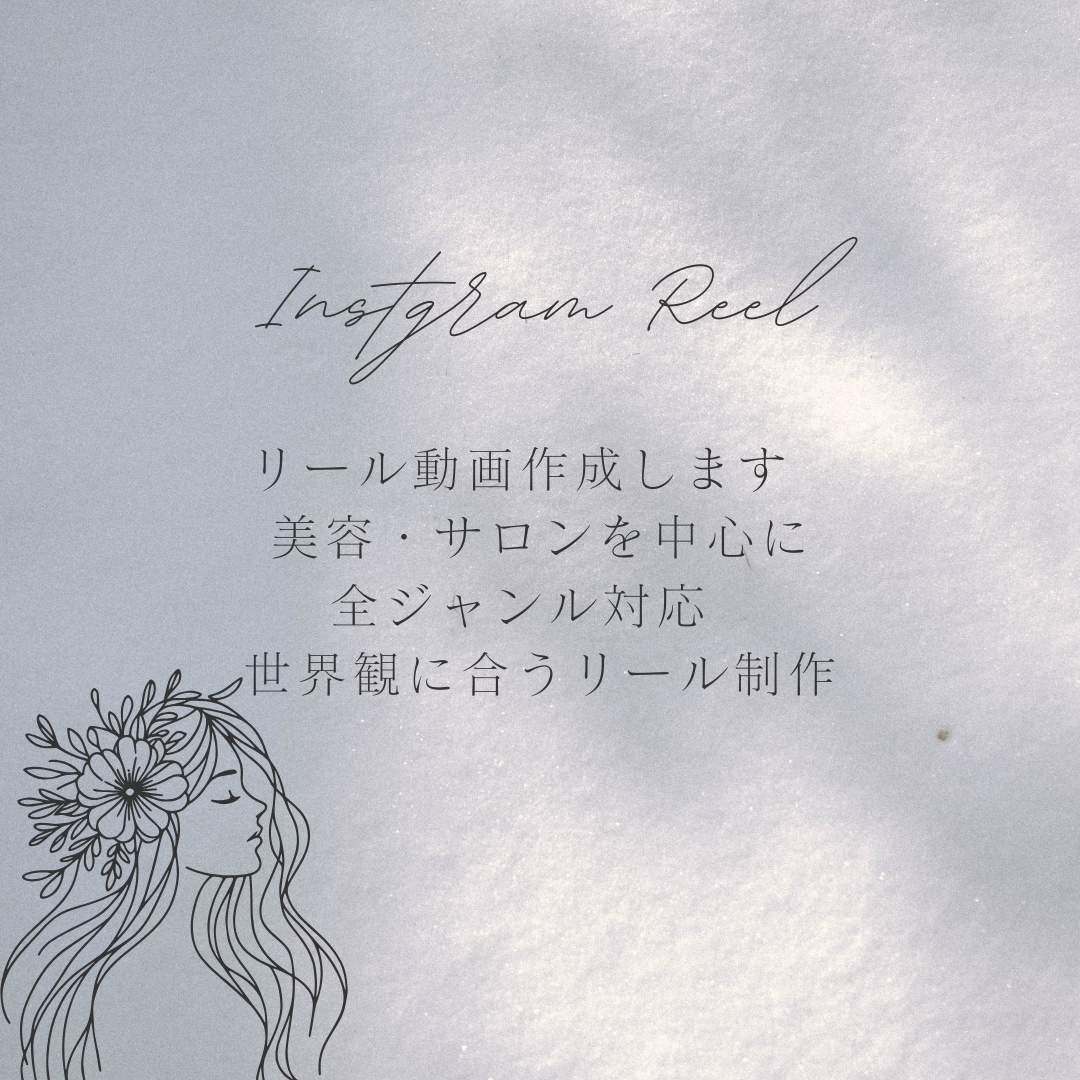 Instgram Reel
リール動画作成します
美容・サロンを中心に
全ジャンル対応
世界観に合うリール制作